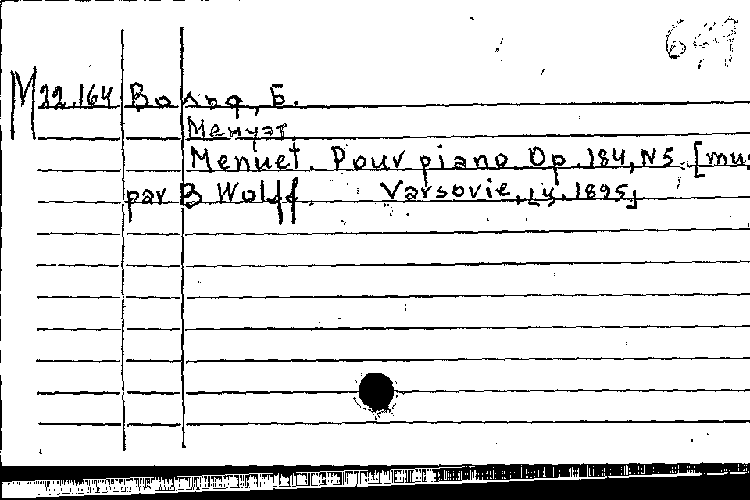 649
М 22.164 Вольф, Б.
Менуэт.
Menuet. Pour piano. Op. 184, N5. [mus
par B Wolff. Varsovie, [ц. 1895]